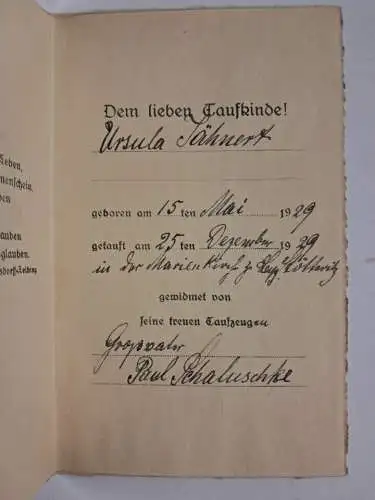 Leben,
nenschein,
ben
auben
glauben.
Dem lieben Taufkinde!
Ursula Jähnert
geboren am 15 ten Mai 1929
getauft am 25 ten Dezember 1929
in der Marienkirch z.
gewidmet von
seine treuen Taufzeugen
Groopvater
Paul Schaluschke